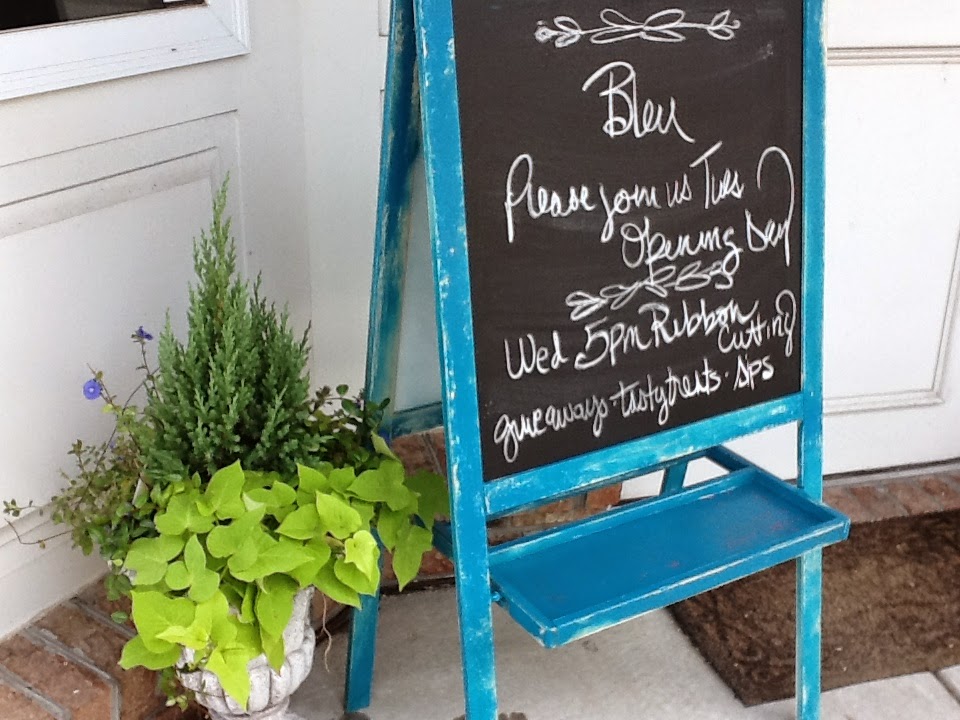 Bleu
Please join us Tues
Opening Day
Wed 5pm Ribbon
Cutting
giveaways · tasty treats · sips